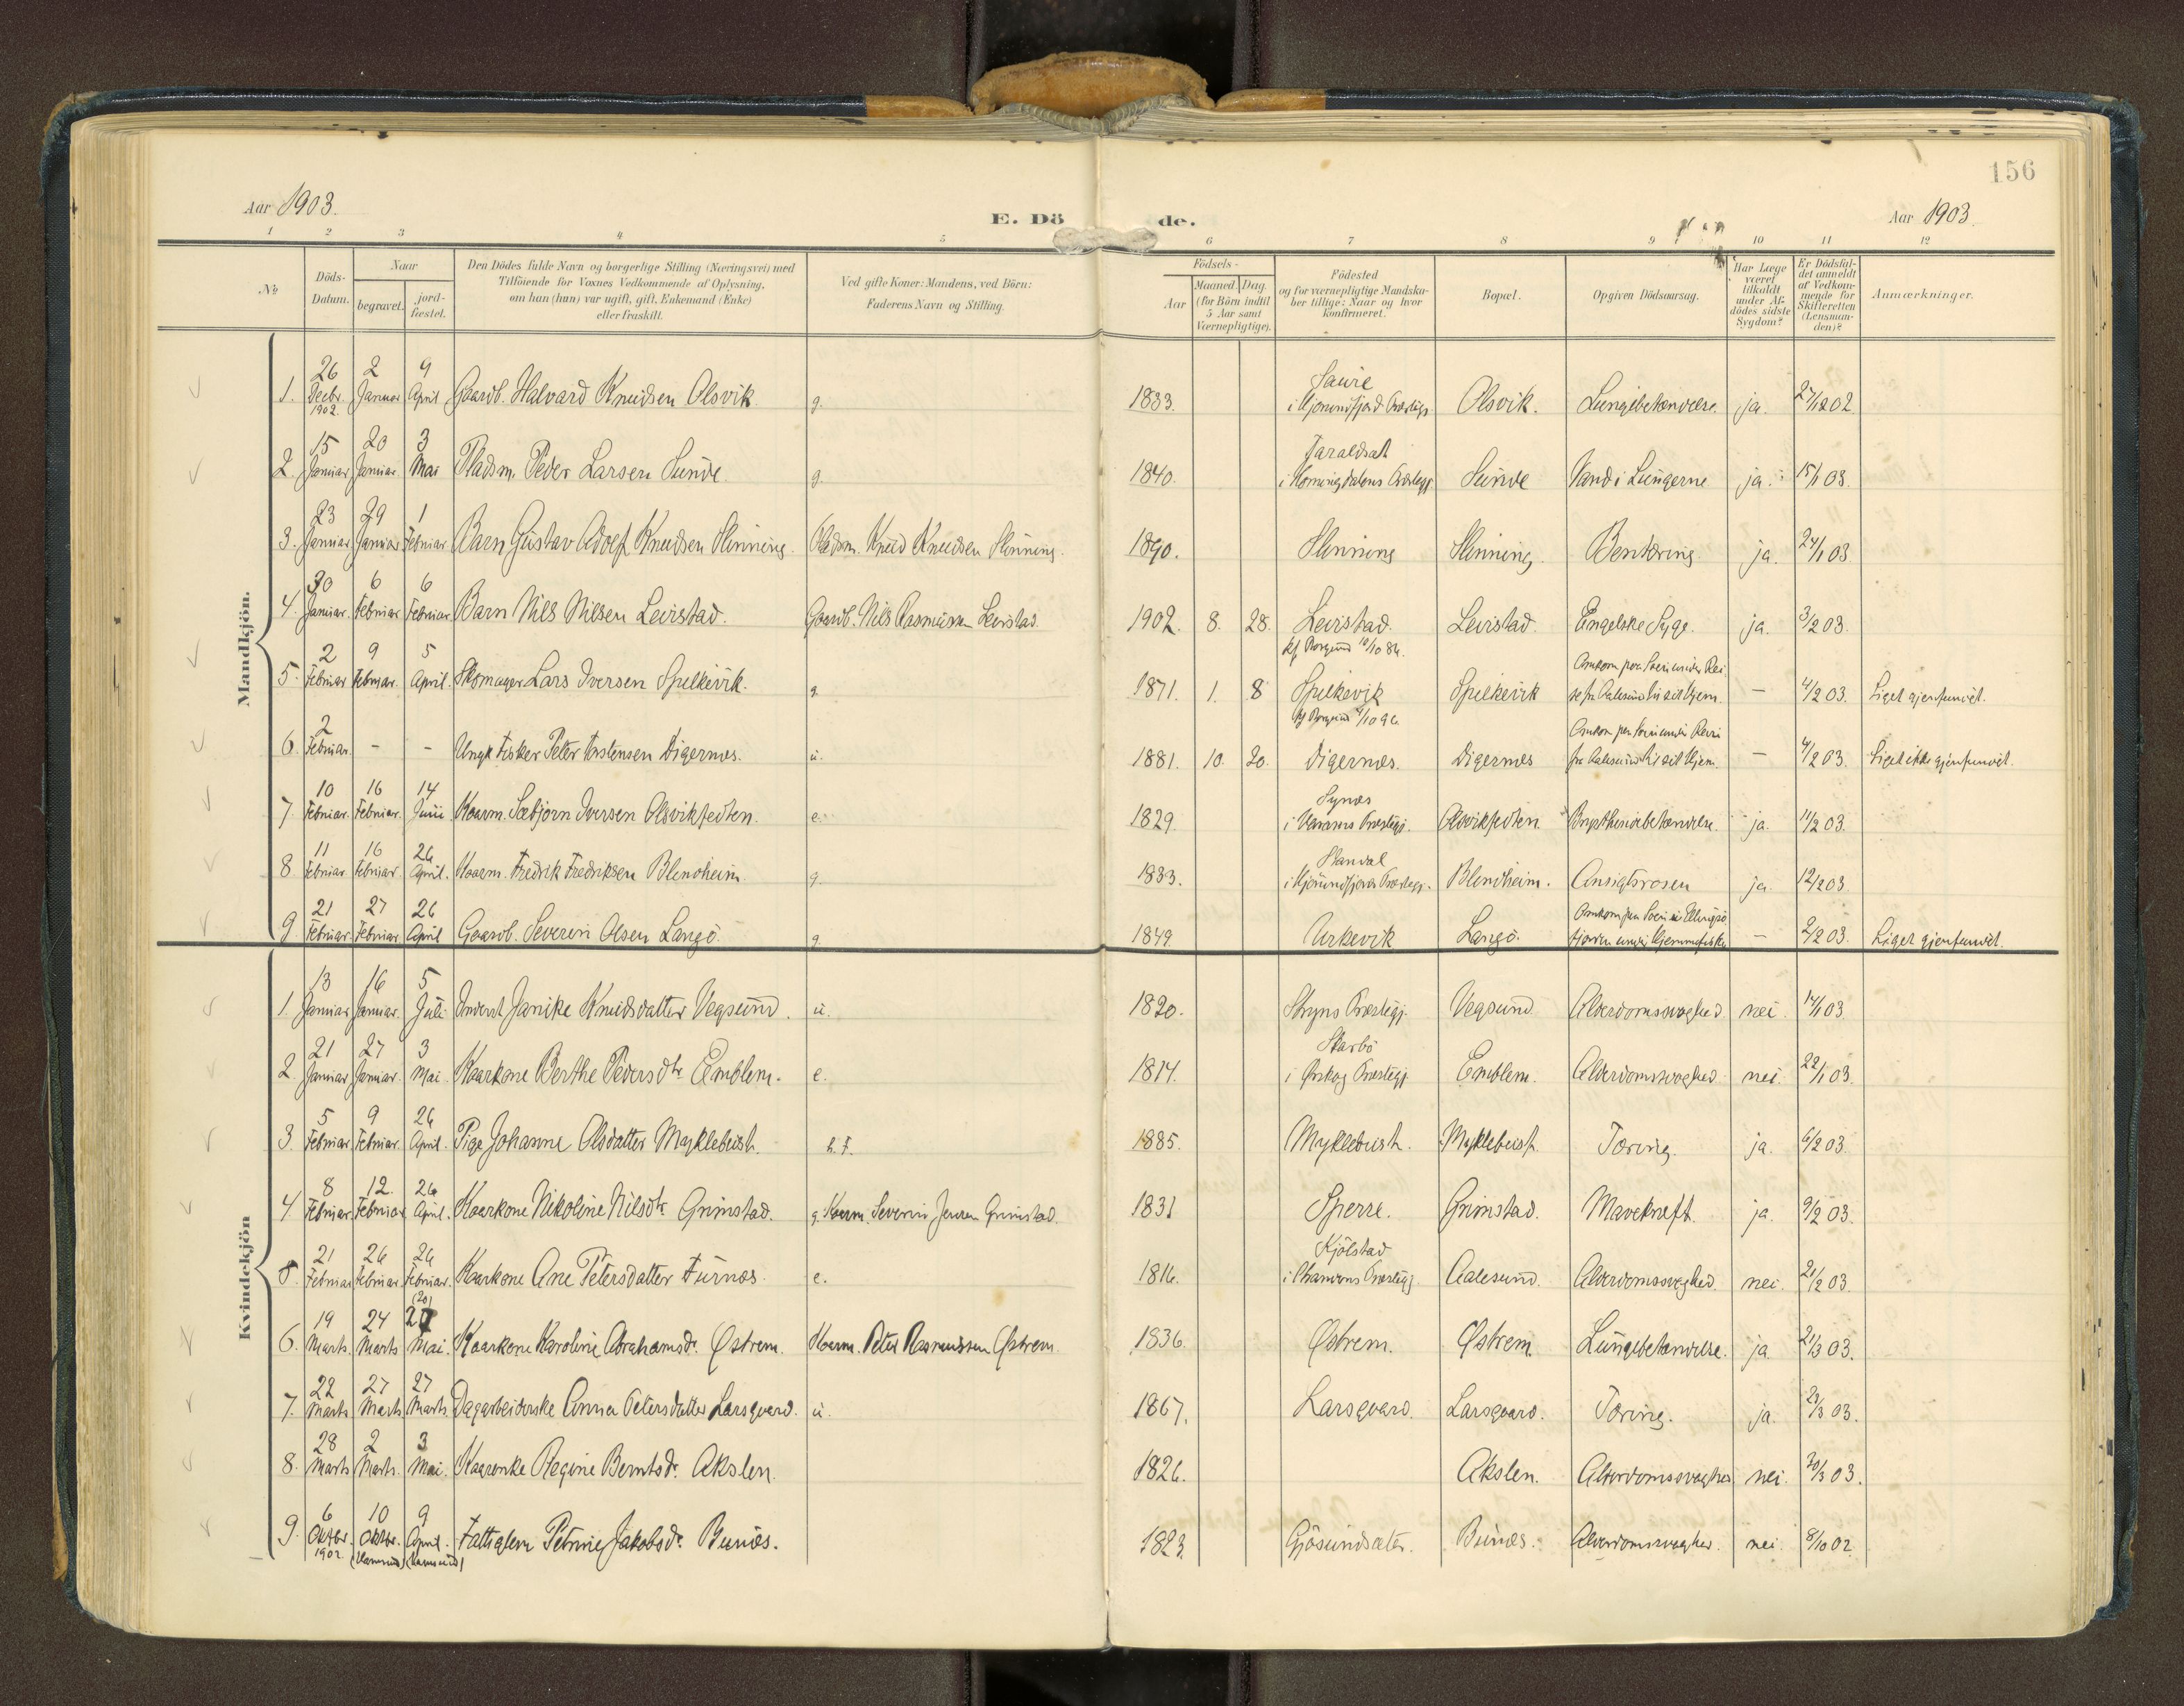 156
Aar 1903.
E. Dö de.
Aar 1903.
1 2 3 4 5 6 7 8 9 10 11 12
No
Döds-Datum.
Naar
begravet.
jord-fæstet.
Den Dödes fulde Navn og borgerlige Stilling (Næringsvei) med
Tilföiende for Voxnes Vedkommende af Oplysning,
om han (hun) var ugift, gift, Enkemand (Enke)
eller fraskilt.
Ved gifte Koner: Mandens, ved Börn:
Faderens Navn og Stilling.
Födsels-
Aar
Maaned. Dag.
(for Börn indtil
5 Aar samt
Værnepligtige).
Födested
og for værnepligtige Mandska-
ber tillige: Naar og hvor
konfirmeret.
Bopæl.
Opgiven Dödsaarsag.
Har Læge
været
tilkaldt
under Af-
dödes sidste
Sygdom?
Er Dödsfal-
det anmeldt
af Vedkom-
mende for
Skifteretten
(Lensman-
den)?
Anmærkninger.
Mandkjön.
1. 26 Decbr. 1902. 2 Januar 9 April Gaardb. Halvard Knudsen Olsvik g. 1833. Saure i Hjörundfjord Præstegj. Olsvik. Lungebetændelse. ja. 27/12 02
2. 15 Januar 20 Januar 3 Mai Pladsm. Peder Larsen Sunde. g. 1840. i Horningdalens Præstegj. Sunde Vand i Lungerne ja. 15/1 03.
3. 23 Januar 29 Januar 1 Februar Barn Gustav Adolf Knudsen Slinning. Pladsm. Knud Knudsen Slinning. 1890. Slinning Slinning. Bentæring. ja. 24/1 03
4. 30 Januar. 6 Februar 6 Februar Barn Nils Nilsen Leirstad. Gaardb. Nils Rasmussen Leirstad. 1902. 8. 28. Leirstad. Leirstad. Engelske Syge. ja. 3/2 03.
5. 2 Februar 9 Februar. 5 April. Skomager Lars Iversen Spilkevik. g. 1871. 1. 8 Spilkevik Spilkevik Omkom paa Söen under Rei
se fra Aalesund til sit Hjem. – 4/2 03. Liget gjenfundet.
6. 2 Februar. – – Ungk. Fisker Peter Torstensen Digernes. u. 1881. 10. 20. Digernes. Digernes Omkom paa Söen under Reise
fra Aalesund til sit Hjem. – 4/2 03. Liget ikke gjenfundet.
7. 10 Februar. 16 Februar. 14 Juni Kaarm. Sæbjörn Iversen Olsvikfedten. e. 1829. Synes i Vanelvens Præstegj. Olsvikfedten. Brysthindebetændelse. ja. 11/2 03.
8. 11 Februar 16 Februar 26 April. Kaarm. Fredrik Fredriksen Blindheim. g. 1833. Standal i Hjörundfjords Præstegj. Blindheim. Ansigtsrosen ja. 12/2 03.
9. 21 Februar 27 Februar 26 April Gaardb. Severin Olsen Langö. g. 1849. Urkevik Langö. – 2/2 03. Liget gjenfundet.
Kvindekjön
1. 13 Januar 16 Januar. 5 Juli Inderst Janike Knudsdatter Vegsund. u. 1820. Stryns Præstegj. Vegsund Alderdomssvaghed nei. 14/1 03
2. 21 Januar 27 Januar. 3 Mai. Kaarkone Berthe Pedersdtr. Emblem. e. 1814. Skarbö i Ørskog Præstegj. Emblem. Alderdomssvaghed nei. 22/1 03.
3. 5 Februar 9 Februar. 26 April. Pige Johanne Olsdatter Myklebust. h. F. 1885. Myklebust. Myklebust. Tæring. ja. 6/2 03.
4. 8 Februar. 12. Februar 26 April. Kaarkone Nikoline Nilsdtr. Grimstad. g. Kaarm. Severin Jensen Grimstad. 1831 Sperre. Grimstad. Mavekræft. ja. 9/2 03.
5. 21 Februar 26 Februar. 26 Februar. Kaarkone Ane Petersdatter Furnæs. e. 1816. Kjölstad i Præstegj. Aalesund. Alderdomssvaghed. nei. 21/2 03.
6. 19 Marts. 24 Marts (20) Mai. Kaarkone Karoline Abrahamsdr. Østrem. Kaarm. Peter Rasmussen Østrem. 1836. Østrem. Østrem. Lungebetændelse. ja. 21/3 03.
7. 22 Marts 27 Marts 27 Marts. Dagarbeiderske Anna Petersdatter Larsgaard. u. 1867. Larsgaard. Larsgaard. Tæring. ja. 23/3 03.
8. 28 Marts 2 Marts. 3 Mai. Kaarenke Regine Berntsdr. Akslen. 1826. Akslen. Alderdomssvaghed nei. 30/3 03.
9. 6 Oktbr. 1902. 10 Oktbr. 9 April. Fattiglem Petrine Jakobsdr. Bunæs. 1823. Gjösundsæter. Bunæs. Alderdomssvaghed. nei. 8/10 02